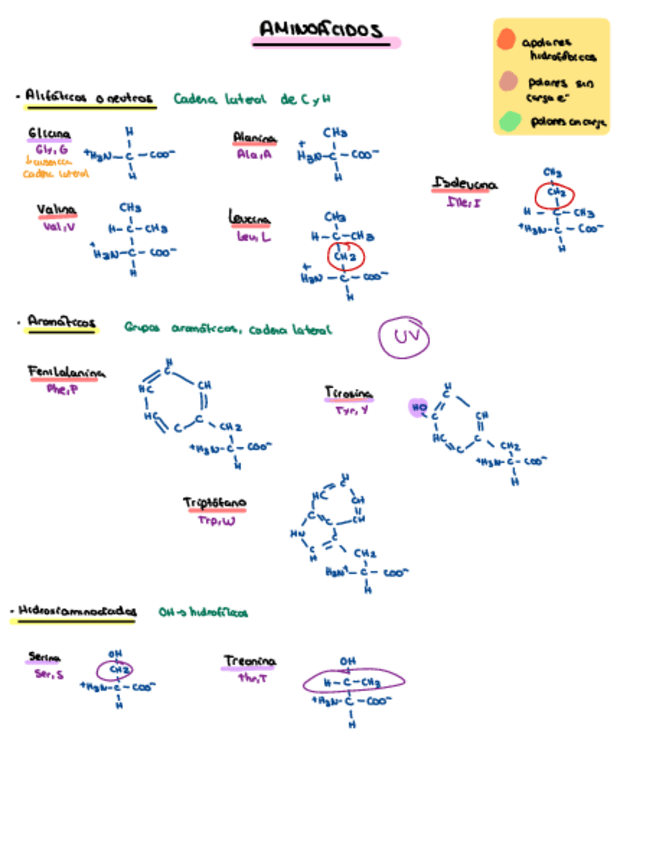 AMINOÁCIDOS
apolares
hidrofóbicos
polares sin
carga e⁻
polares con carga
· Alifáticos o neutros Cadena lateral de C y H
Glicina
Gly, G
↳ ausencia
cadena lateral
H
⁺H₃N–C–COO⁻
H
Alanina
Ala, A
CH₃
+
H₃N–C–COO⁻
H
Isoleucina
Ile, I
CH₃
CH₂
H–C–CH₃
⁺H₃N–C–COO⁻
H
Valina
Val, V
CH₃
H–C–CH₃
+
H₃N–C–COO⁻
H
Leucina
Leu, L
CH₃
H–C–CH₃
CH₂
+
H₃N–C–COO⁻
H
· Aromáticos Grupos aromáticos, cadena lateral
UV
Fenilalanina
Phe, F
H
C
HC CH
HC C
C CH₂
⁺H₃N–C–COO⁻
H
Tirosina
Tyr, Y
H
C
HO
C CH
HC C
C CH₂
⁺H₃N–C–COO⁻
H
Triptófano
Trp, W
H
C
HC CH
C CH
C
HN C
C
H
CH₂
H₃N⁺–C–COO⁻
H
OH→hidrofílicos
Serina
Ser, S
OH
CH₂
⁺H₃N–C–COO⁻
H
Treonina
Thr, T
OH
H–C–CH₃
⁺H₃N–C–COO⁻
H